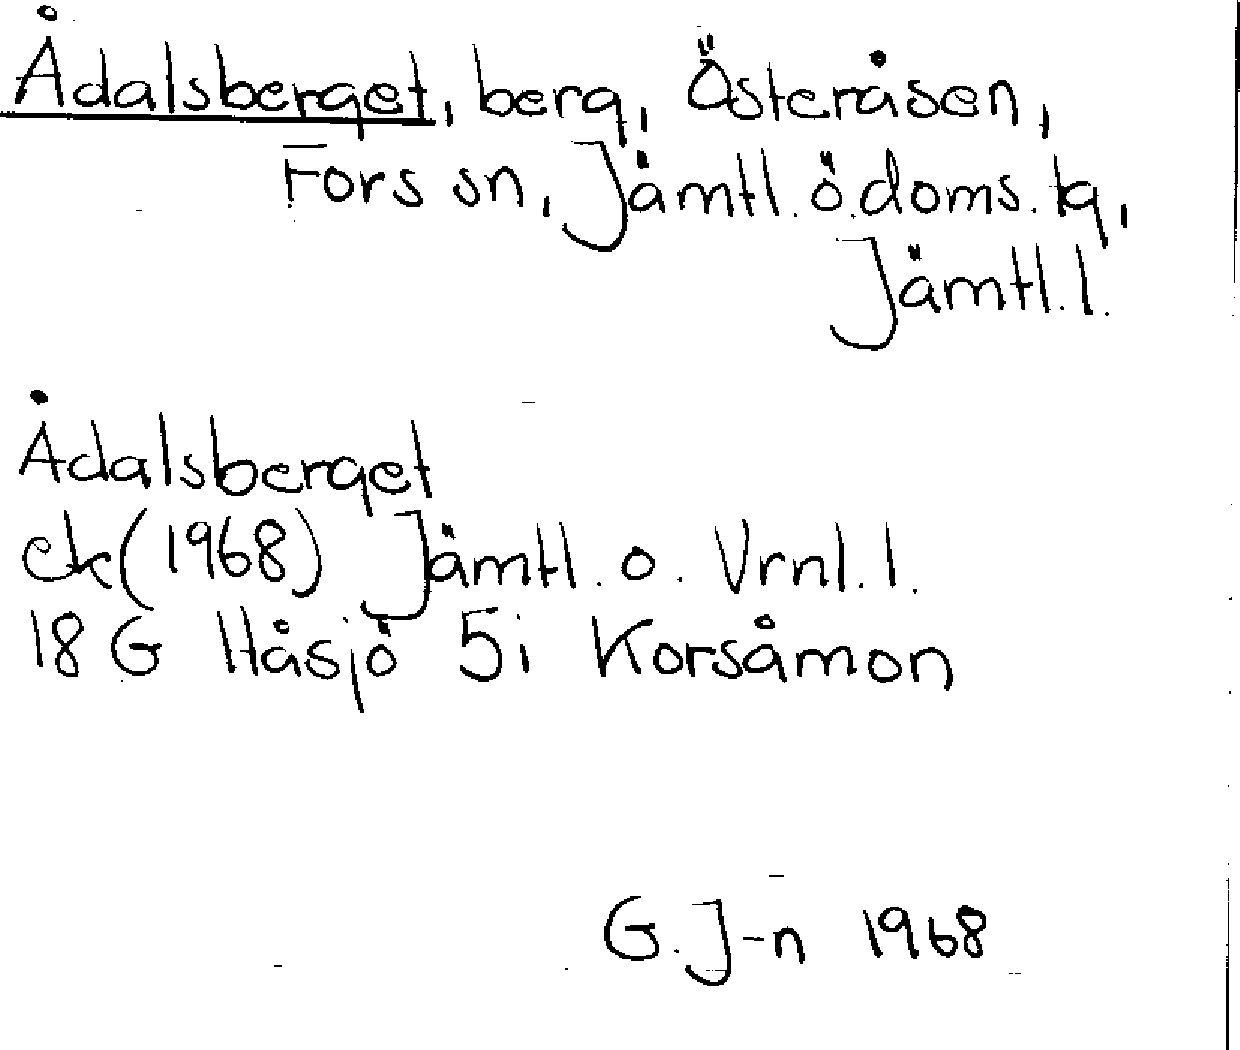 Ådalsberget, berg, Österåsen,
Fors sn, Jämtl. ö. doms. tg,
Jämtl. l.
Ådalsberget
ek (1968) Jämtl. o. Vrnl. l.
18 G Håsjö 5i Korsåmon
G. J-n 1968